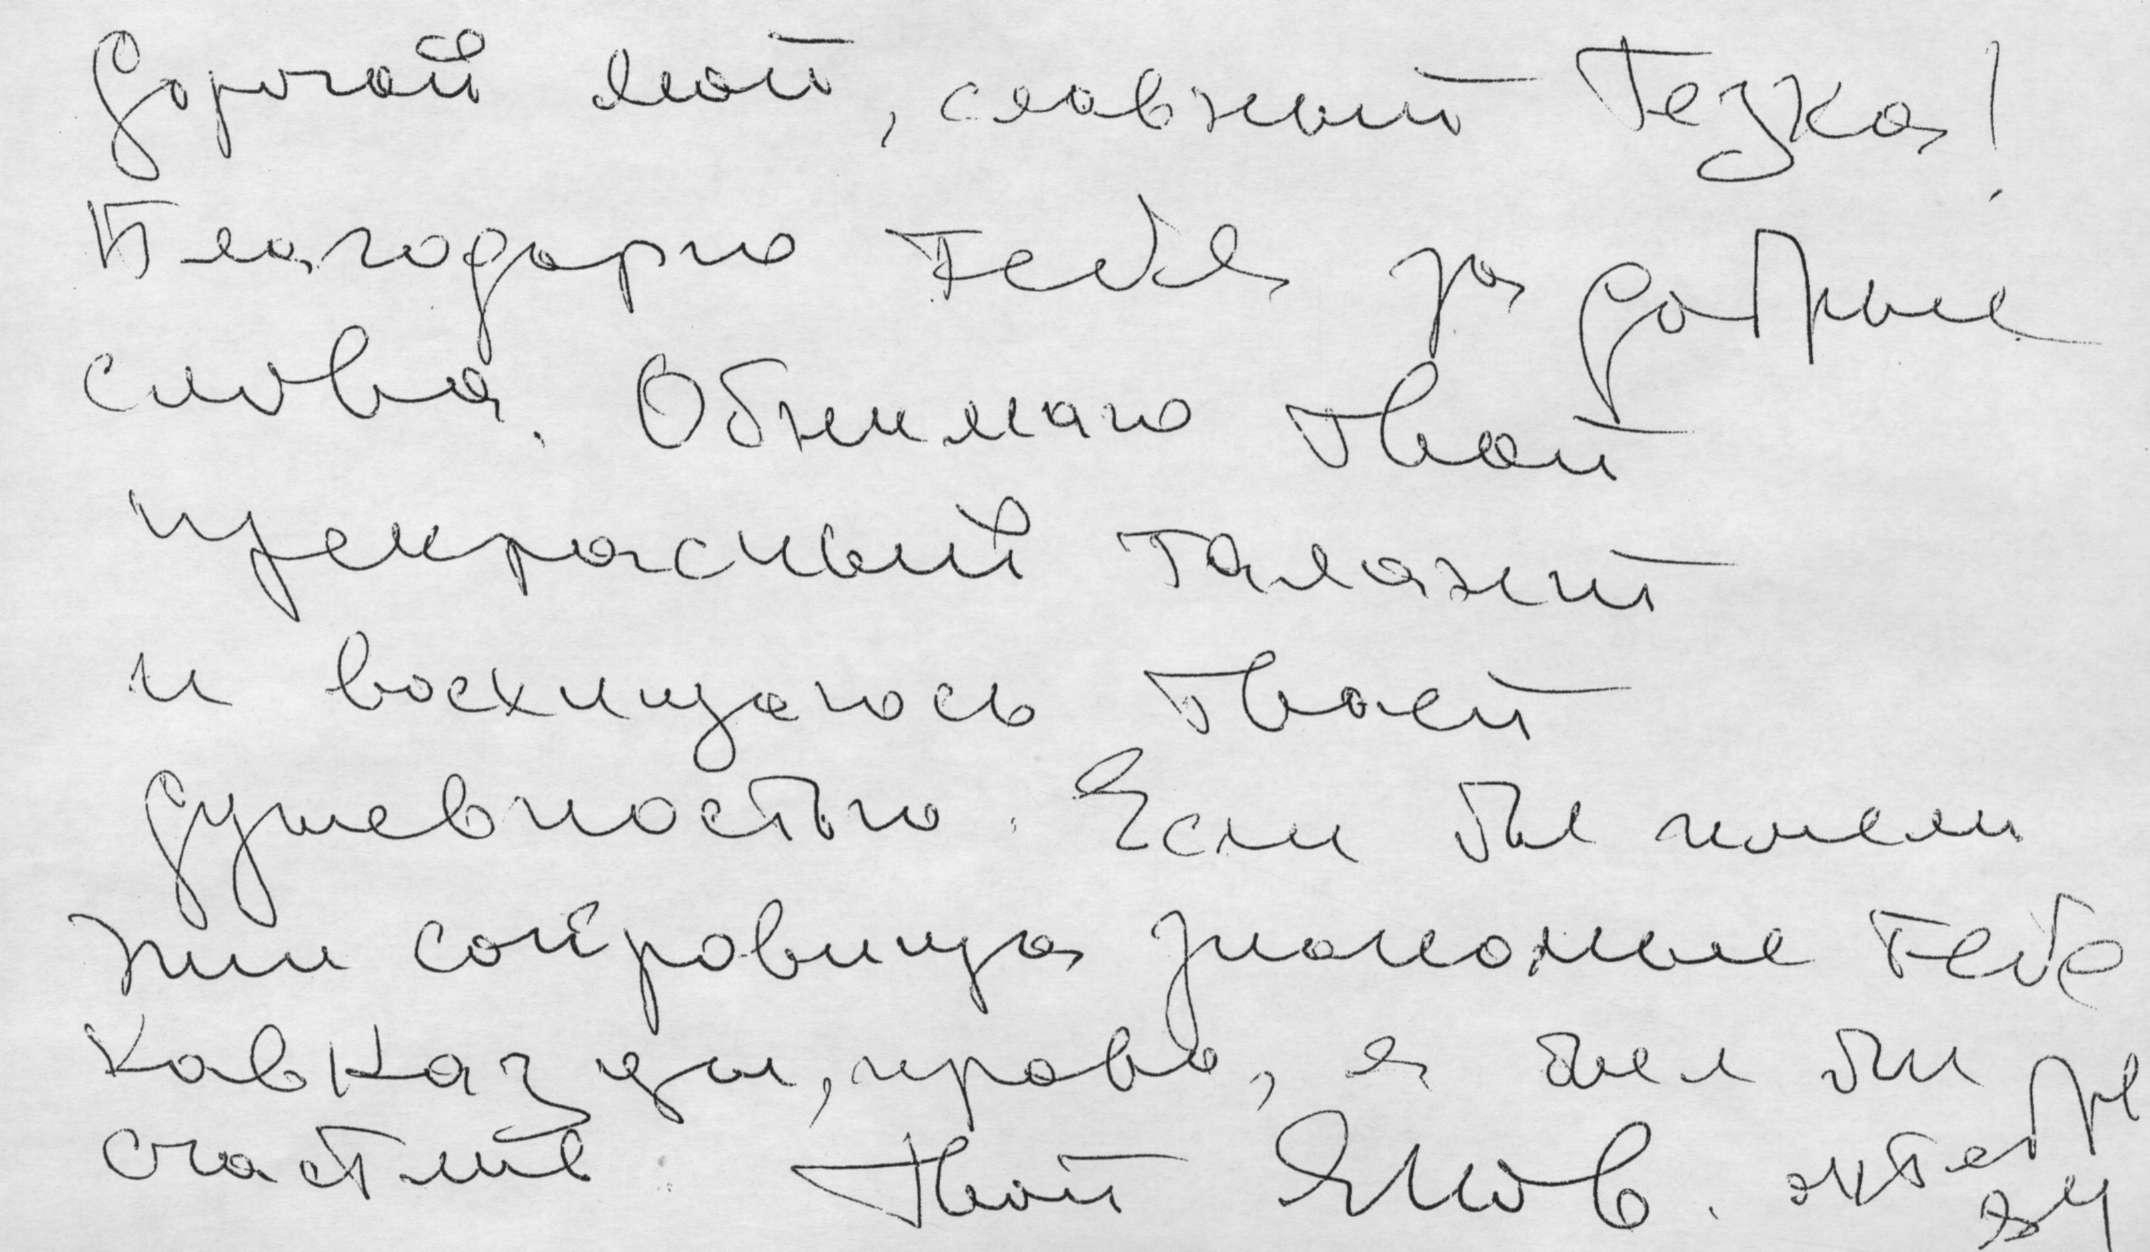 Дорогой мой, славный тезка!
Благодарю тебя за добрые
слова. Обнимаю твой
прекрасный талант
и восхищаюсь твоей
душевностью. Если бы имели
эти сокровища знакомые тебе
кавказцы, право, я был бы
счастлив. Твой Яков. октябрь
84